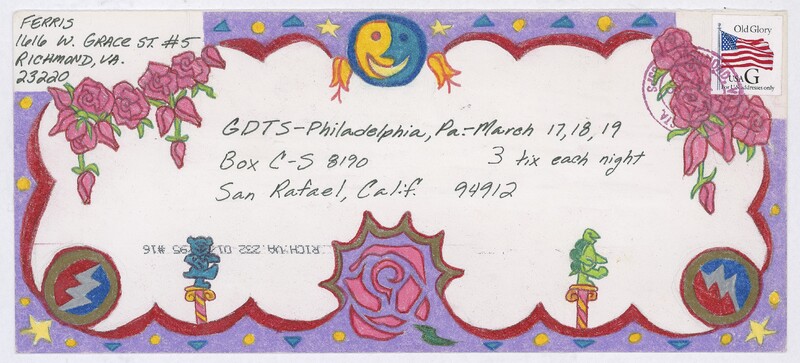 FERRIS
1616 W. GRACE ST. #5
RICHMOND, VA.
23220
Old Glory
USA G
For U.S. addresses only
GDTS-Philadelphia, Pa.-March 17, 18, 19
Box C-S 8190 3 tix each night
San Rafael, Calif. 94912
RICH VA 232 01 95 #16